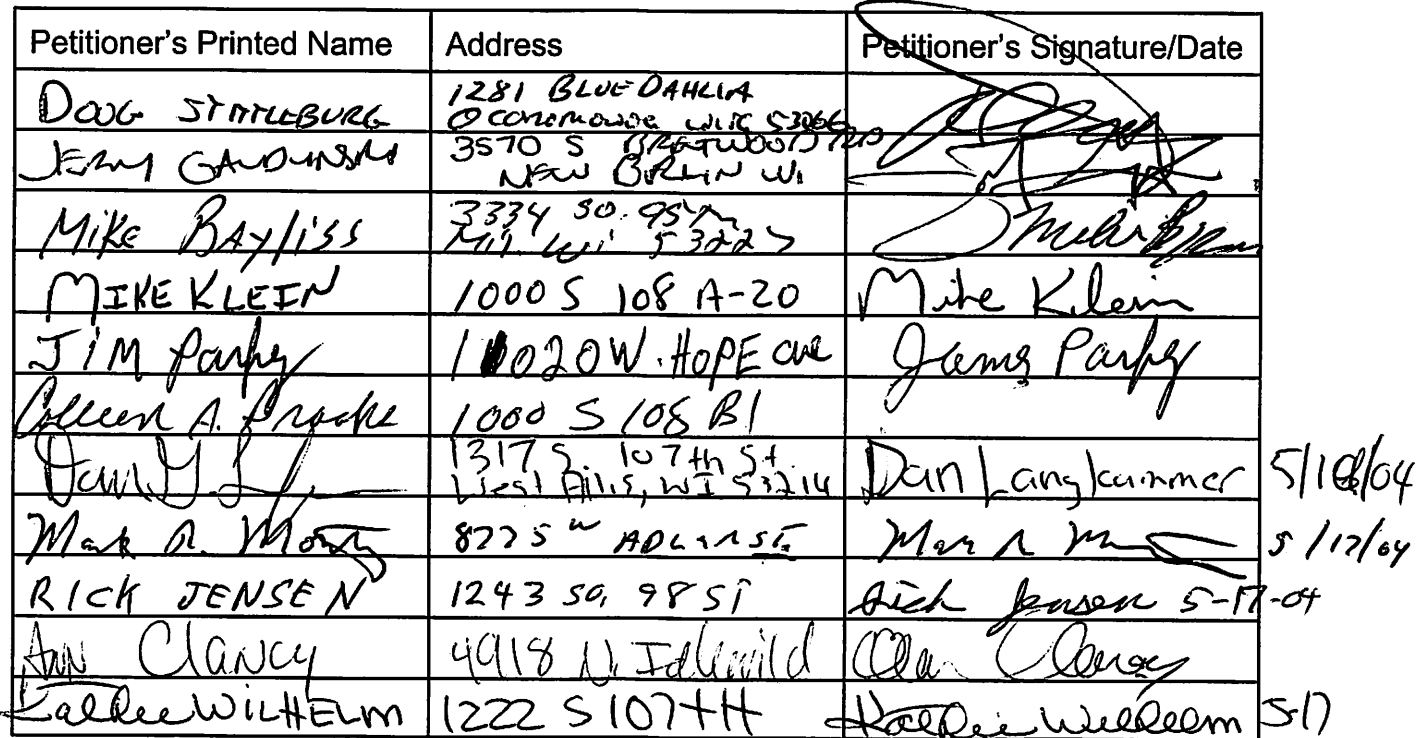 Petitioner's Printed Name Address Petitioner's Signature/Date
DOUG STATTLEBURG 1281 BLUE DAHLIA
Oconomowoc WIS 53066
JERRY 3570 S BRETWOOD RD
NEW BRLIN WI
MIKE BAYlISS 3334 SO. 95th
Mil. Wi 53227
MIKE KLEIN 1000 S 108 A-20 Mike Klein
JIM 11020 W. HOPE ave James
Colleen A. 1000 S 108 B1
1317 S. 107th St.
West Allis, WI 53214 Dan Langkammer 5/18/04
Mark R. 8225 W ST. Mark R 5/17/04
RICK JENSEN 1243 SO, 98 ST Rick Jensen 5-17-04
Ann Clancy 4918 N. Idlewild Clancy
WILHELM 1222 S 107tH Wilhelm 5-17